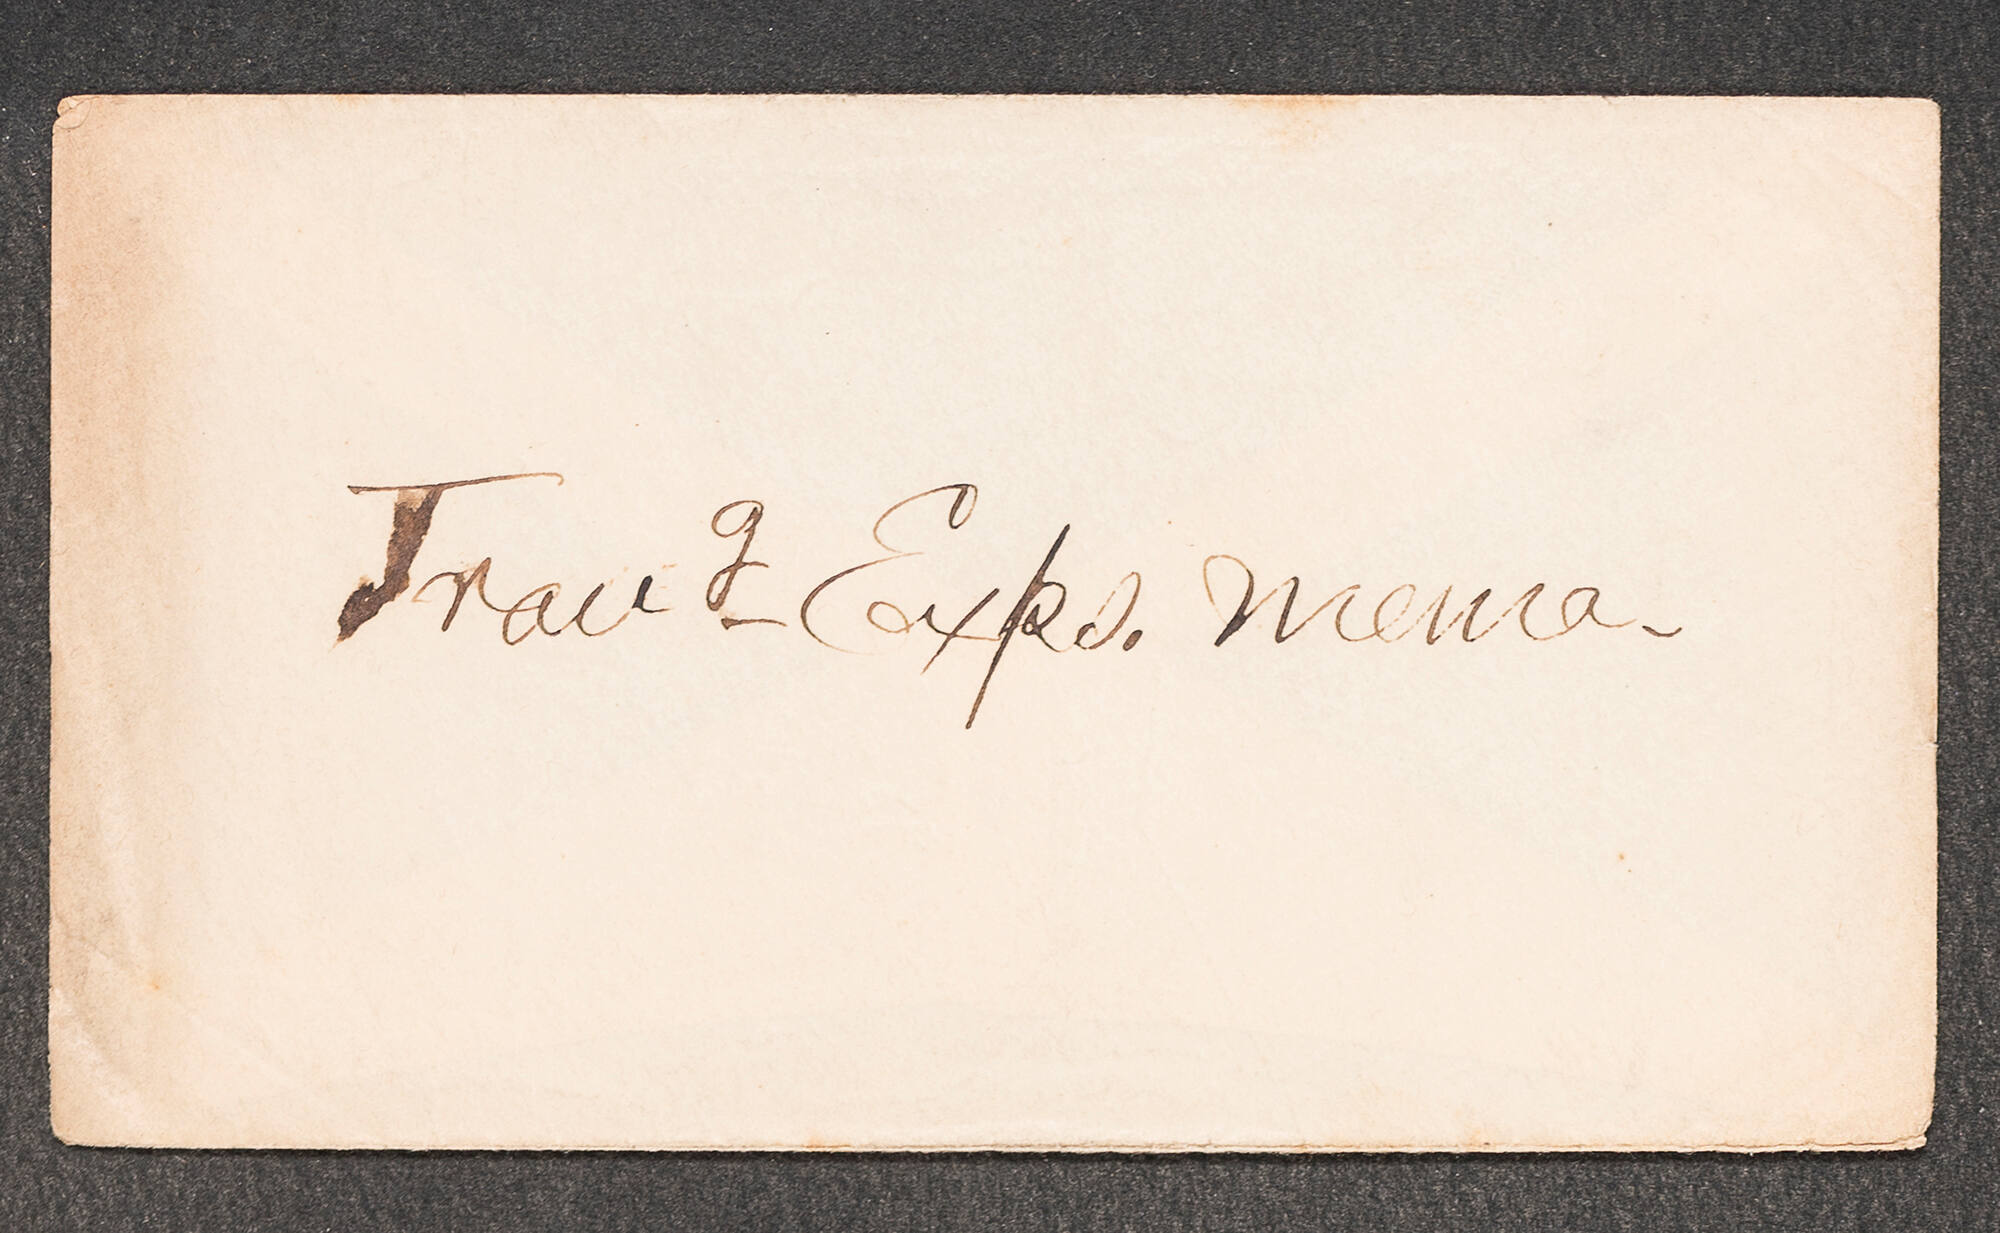 Trav^g Exps. Memo-